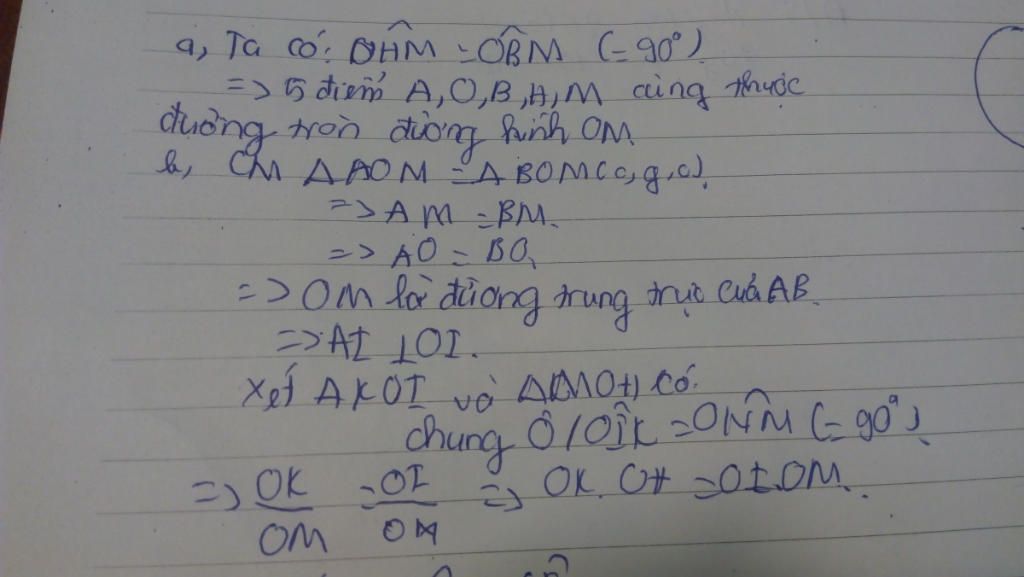 a, Ta có: OĤM = OB̂M (= 90°)
=> 5 điểm A, O, B, H, M cùng thuộc
đường tròn đường kính OM.
b, CM Δ AOM = Δ BOM (c, g, c)
=> AM = BM.
=> AO = BO,
=> OM là đường trung trực của AB.
=> AI ⊥ OI.
Xét Δ KOI và Δ MOH có:
chung Ô / OÎK = OĤM (= 90°)
=> OK/OM = OI/OH => OK. OH = OI. OM.